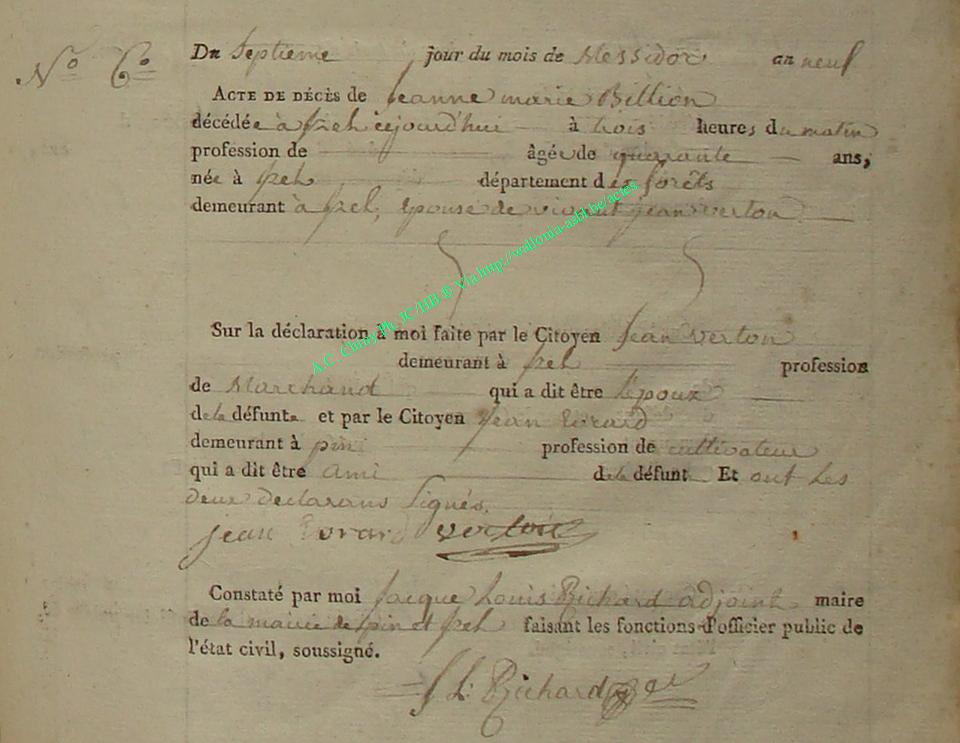 N.º 6.º
Du Septieme jour du mois de Messidor an neuf
ACTE DE DÉCÈS de Jeanne marie Billion
décédée à Izel cejourd'hui à trois heures du matin
profession de âgée de quarante ans,
née à Izel département des forêts
demeurant à Izel, Epouse de vivant jean verton
Sur la déclaration à moi faite par le Citoyen Jean verton
demeurant à Izel profession
de Marchand qui a dit être l'époux
de la défunte et par le Citoyen Jean Evrard
demeurant à pin profession de cultivateur
qui a dit être ami de la défunte Et ont les
deux declarans Signés.
jean Evrard verton
Constaté par moi Jacque Louis Richard adjoint maire
de la mairie de pin et Izel faisant les fonctions d'officier public de
l'état civil, soussigné.
J L: Richard
A.C. Chiny Ph. JC/HB @ Via http://wallonia-asbl.be/actes